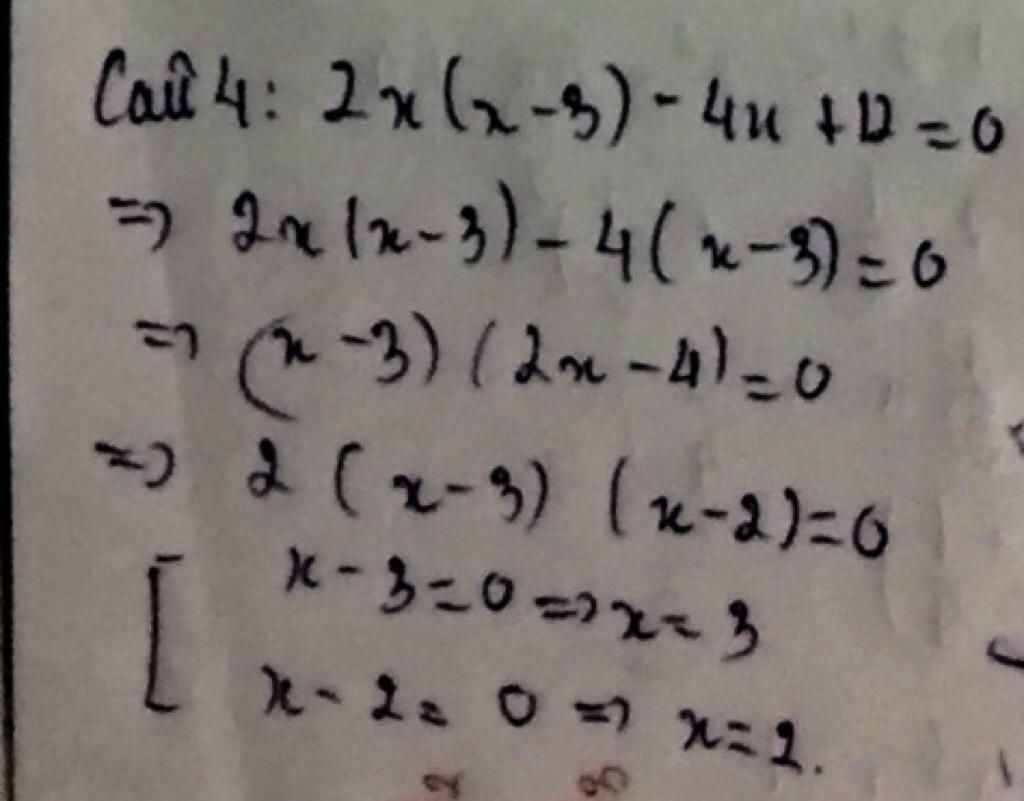 Câu 4: 2x(x-3) - 4x + 12 = 0
=> 2x(x-3) - 4(x-3) = 0
=> (x-3)(2x-4) = 0
=> 2(x-3)(x-2) = 0
[ x-3 = 0 => x = 3
x-2 = 0 => x = 2.
2 3